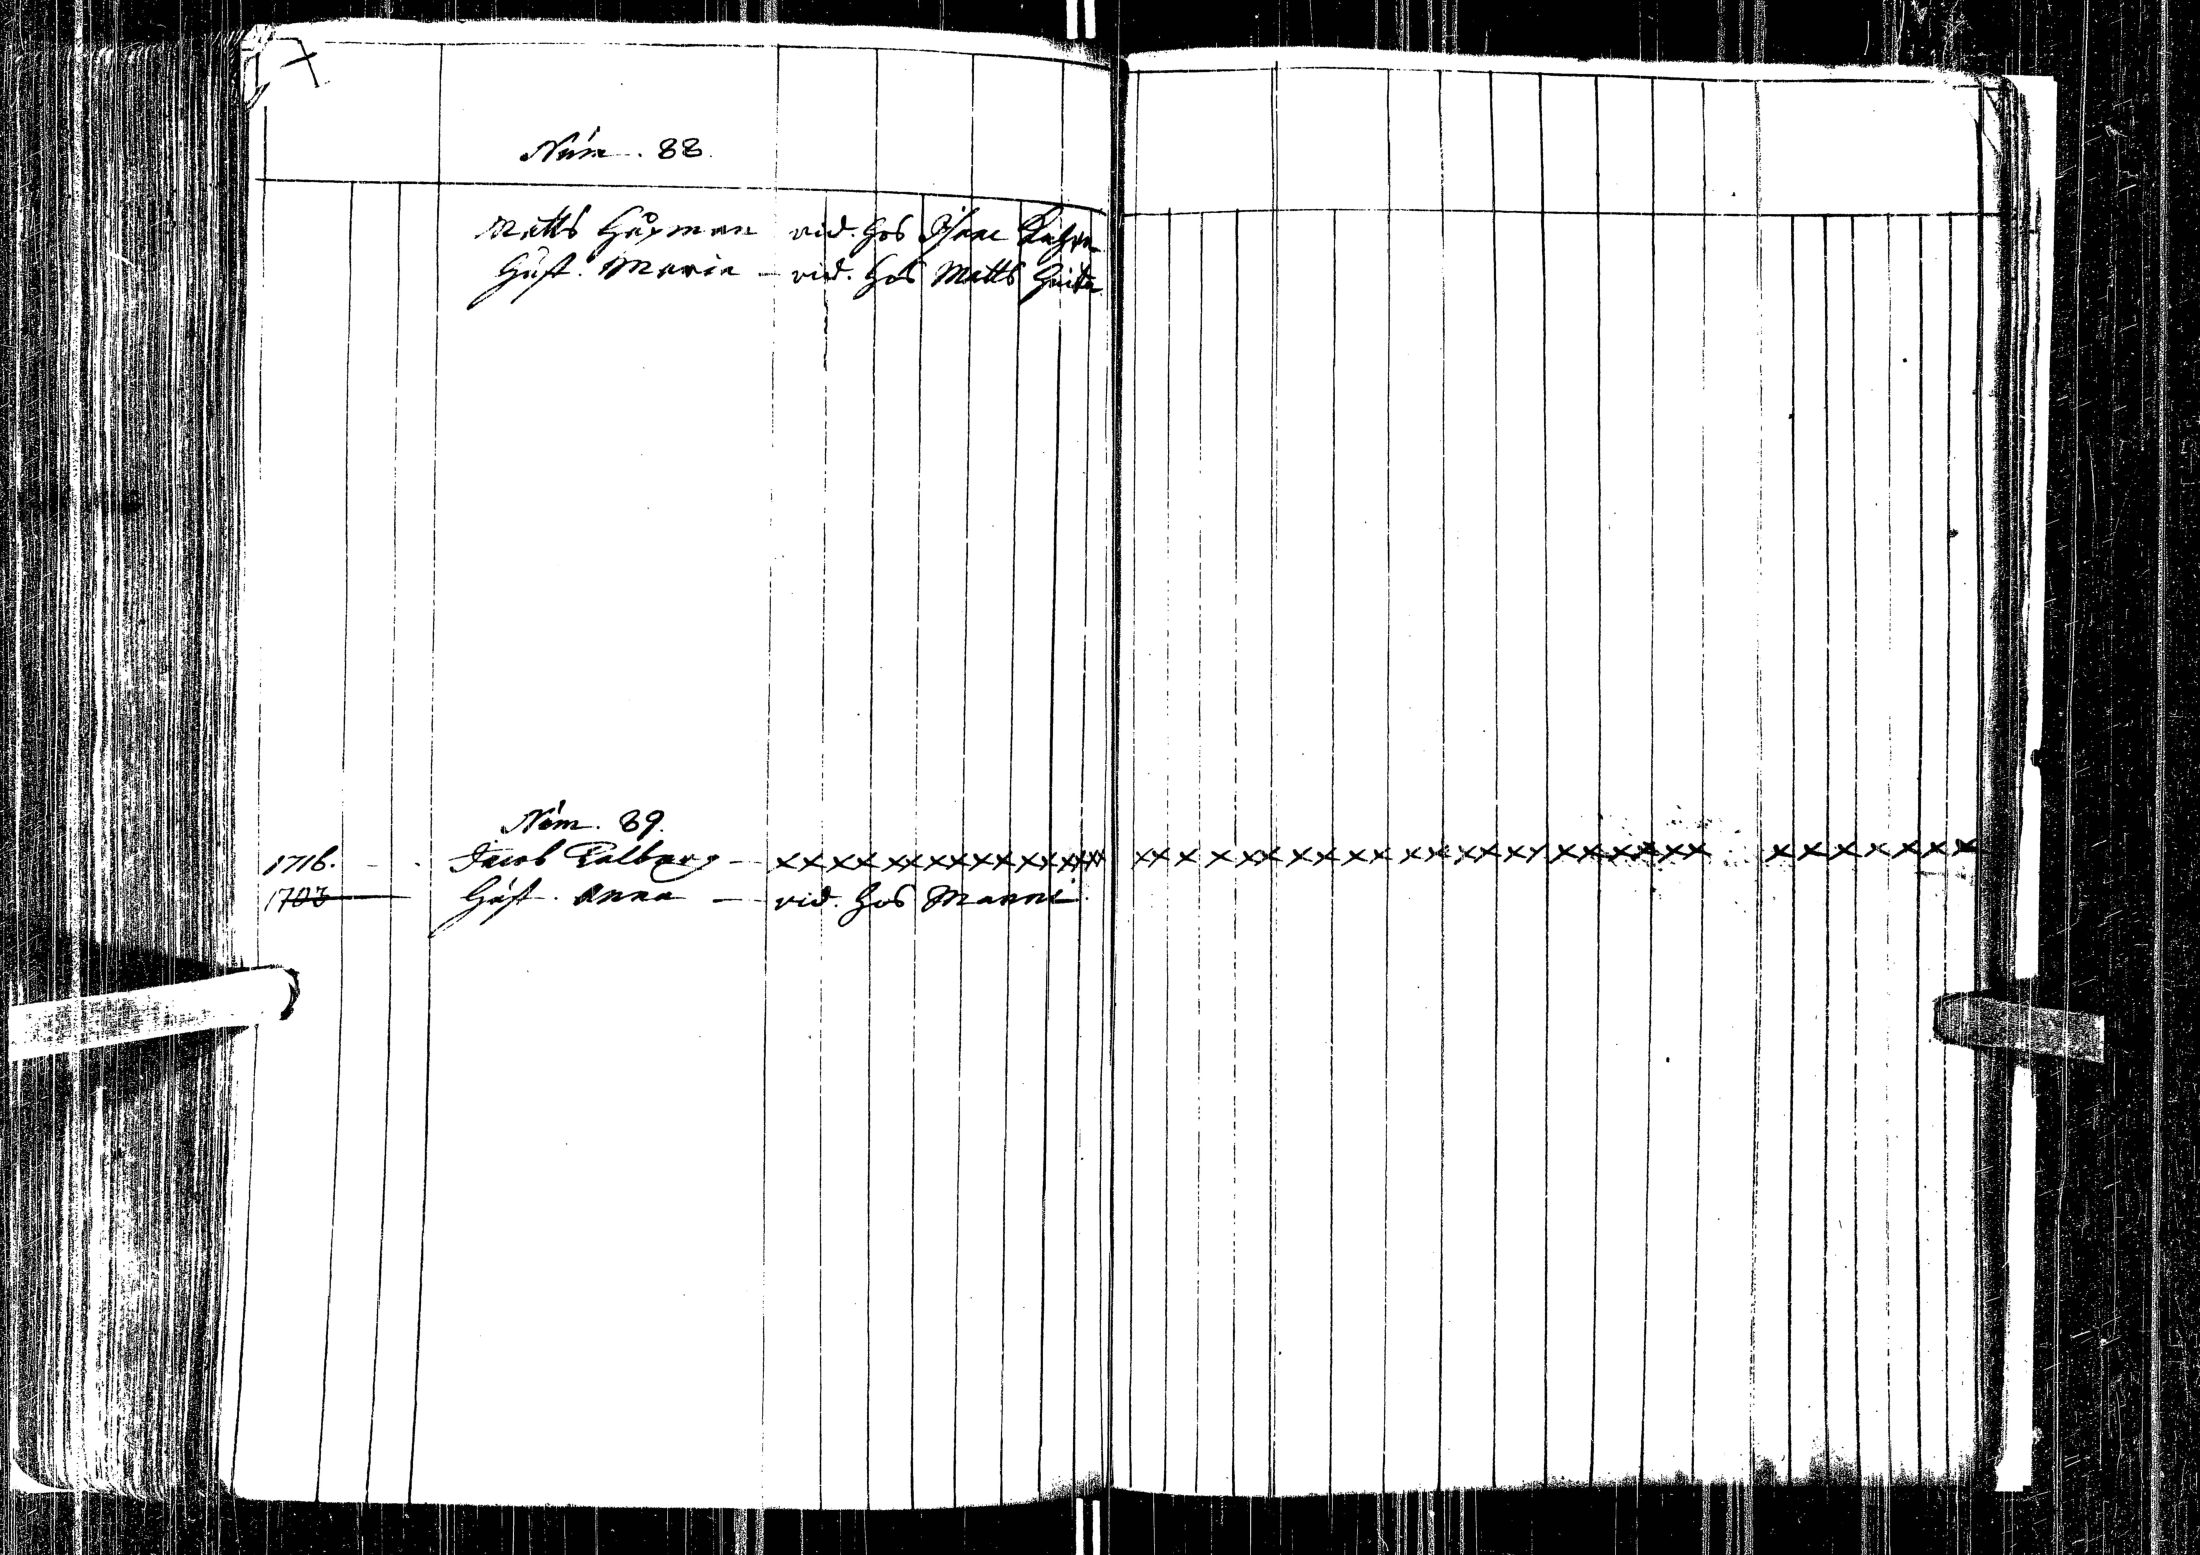 Núm. 88.
Matts Hägman vid. hos Isaac
Hust. Maria – vid. hos Matts
Núm. 89.
1716. Jacob Calberg – xxxxxxxxxxxxxxxx xxx x xx xxxxx xx xxxx xxxxxxx xxxxxxx
1703 Hust. Anna – vid. hos Manni.